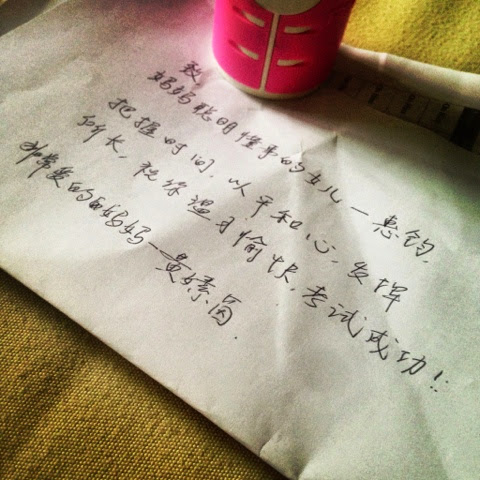 致
妈妈聪明懂事的女儿—惠钧,
把握时间,以平和心,发挥
所长,祝你温习愉快,考试成功!!
非常爱的妈妈—黄素茵